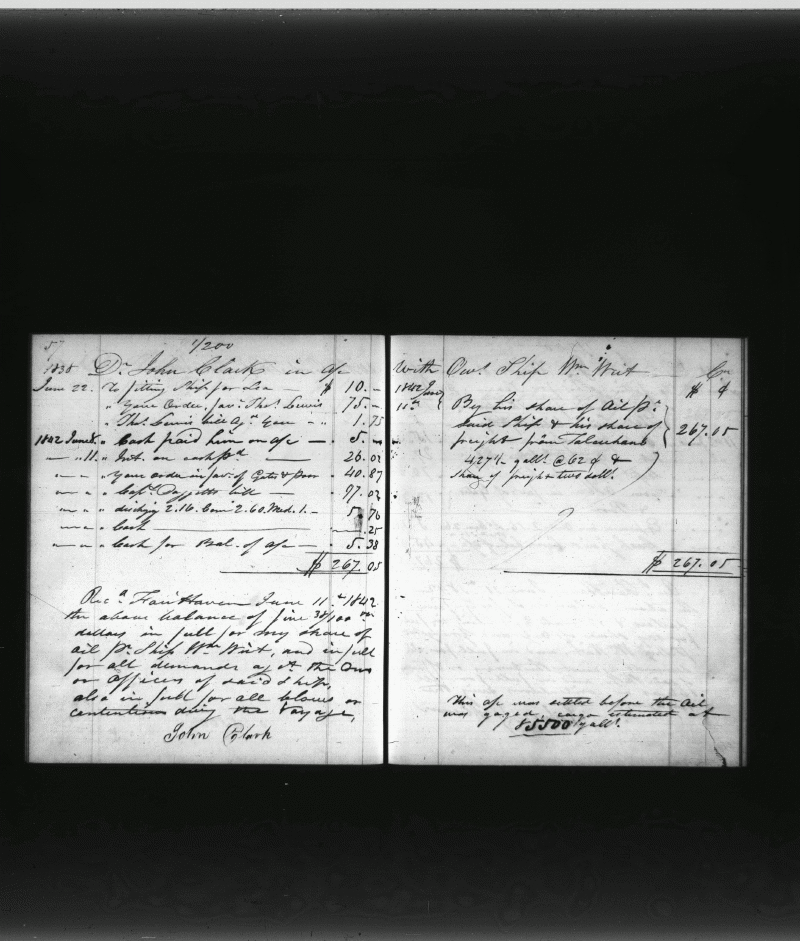 57
1/200
1838 Dr. John Clark in a/c
June 22. To fitting Ship for Sea — $ 10. –
" Your Order. fav. Thos. Lewis 75. –
" Thos. Lewis bill agt. Your – " 1.75
1842 June 8. " Cash paid him on a/c — 5. –
— " 11. " Int. on cash pd 26.02
" your order in fav. of Gates & 40.87
" Capt. bill — 97.02
" dischg 2.16. 2.60. Med. 1. – 5.76
" Cash — .25
" Cash for Bal. of a/c — 5.38
$ 267.05
Recd. Fair Haven June 11th 1842
the above balance of five 38/100
dollars in full for my share of
oil pr Ship Wm Wirt, and in full
for all demands agst. the Owns
or Officers of said Ship,
also in full for all blows or
contentions during the Voyage,
John Clark
With Owns. Ship Wm Wirt Cr
1842 June $ ¢
11th By his share of Oil Pr.
Said Ship & his share of
freight from Talcahuano 267.05
427 galls @ 62 ¢ &
share of freight two doll.
$ 267.05
This a/c was settled before the Oil
was gaged, cargo estimated at
85500 galls.